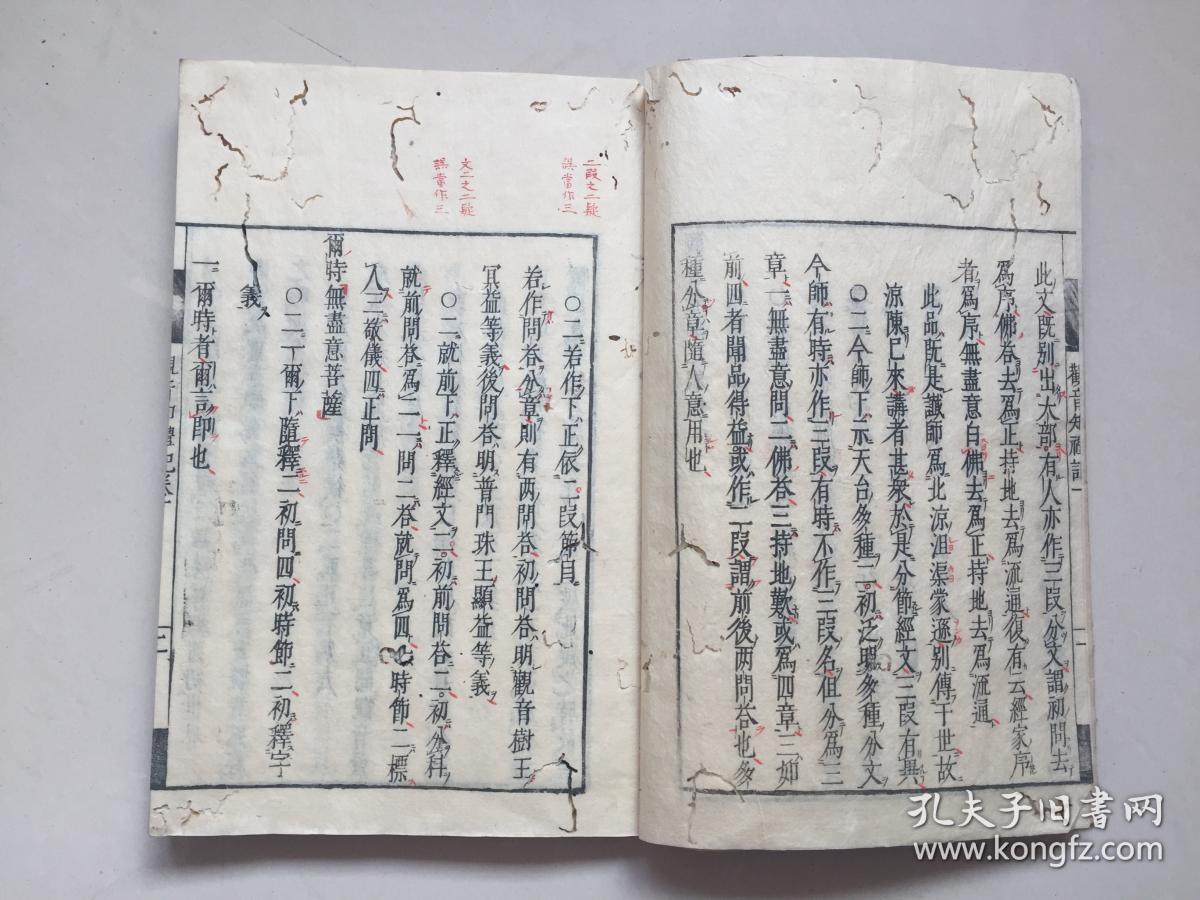 此文既別出大部有人亦作三叚分文謂初問去
爲序佛荅去爲正持地去爲流通復有云經家序
者爲序無盡意白佛去爲正持地去爲流通
此品既是䜟師爲北涼沮渠蒙遜別傳于世故
涼陳已來講者甚衆於是分節經文三叚有異
〇二今師下示天台多種二初乏明多種分文
今師有時亦作三叚有時不作三叚名但分爲三
章一無盡意問二佛荅三持地歎或爲四章三如
前四者聞品得益或作二叚謂前後两問荅也多
種分章隨人意用也
觀音
記一
二叚文二疑
誤當作三
文二之二疑
誤當作三
〇二若作下正依二叚節目
若作問荅分章則有两問荅初問荅明觀音樹王
冥益等義後問荅明普門珠王顯益等義
〇二就前下正釋經文二初前問荅二初分科
就前問荅爲二一問二荅就問爲四一時節二標
人三敬儀四正問
爾時無盡意菩薩
〇二一爾下隨釋二初問四初時節二初釋字
義
一爾時者爾言即也
孔夫子旧书网
www.kongfz.com